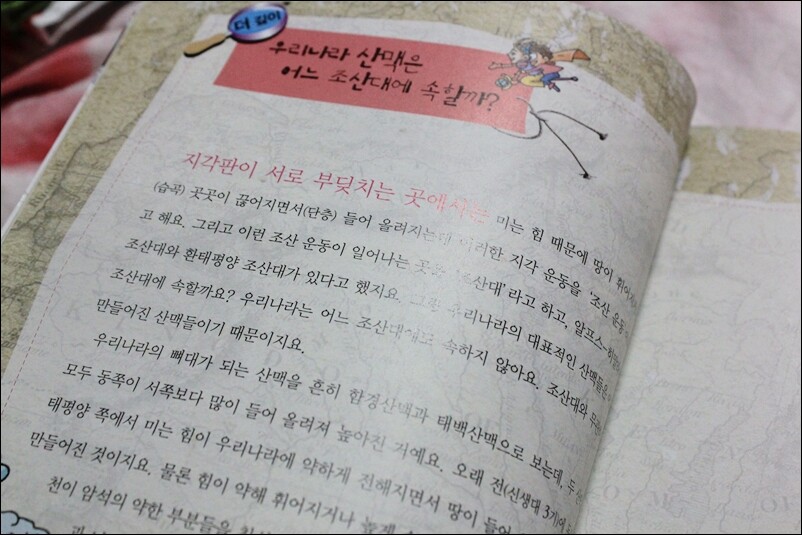 더 깊이
우리나라 산맥은
어느 조산대에 속할까?
지각판이 서로 부딪치는 곳에서는 미는 힘 때문에 땅이 휘어
(습곡) 곳곳이 끊어지면서(단층) 들어 올려지는데 이러한 지각 운동을 '조산 운동
고 해요. 그리고 이런 조산 운동이 일어나는 곳을 '조산대'라고 하고, 알프스-히말
조산대와 환태평양 조산대가 있다고 했지요. 그럼 우리나라의 대표적인 산맥들은
조산대에 속할까요? 우리나라는 어느 조산대에도 속하지 않아요. 조산대와
만들어진 산맥들이기 때문이지요.
우리나라의 뼈대가 되는 산맥을 흔히 함경산맥과 태백산맥으로 보는데, 두
모두 동쪽이 서쪽보다 많이 들어 올려져 높아진 거예요. 오래 전(신생대 3기)에
태평양 쪽에서 미는 힘이 우리나라에 약하게 전해지면서 땅이 들어
만들어진 것이지요. 물론 힘이 약해 휘어지거나
천이 암석의 약한 부분들을